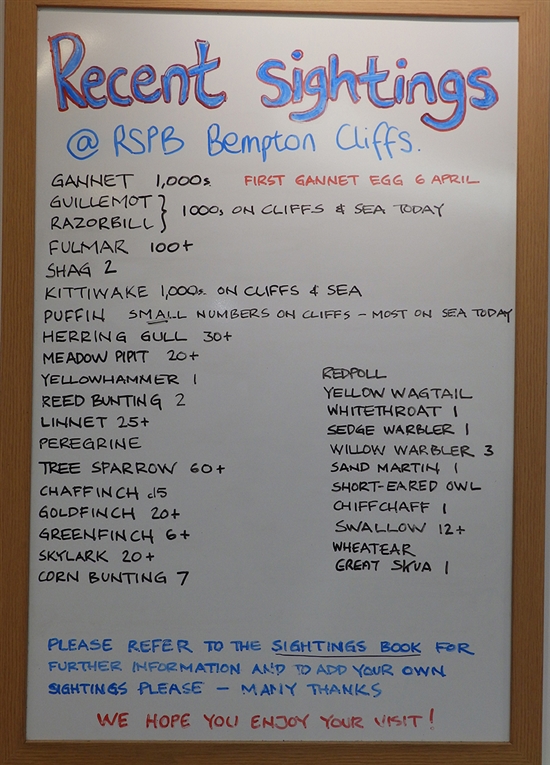 Recent Sightings
@ RSPB Bempton Cliffs.
GANNET 1,000s FIRST GANNET EGG 6 APRIL
GUILLEMOT
RAZORBILL } 1000s ON CLIFFS & SEA TODAY
FULMAR 100+
SHAG 2
KITTIWAKE 1,000s ON CLIFFS & SEA
PUFFIN SMALL NUMBERS ON CLIFFS – MOST ON SEA TODAY
HERRING GULL 30+
MEADOW PIPIT 20+
YELLOWHAMMER 1
REED BUNTING 2
LINNET 25+
PEREGRINE
TREE SPARROW 60+
CHAFFINCH c15
GOLDFINCH 20+
GREENFINCH 6+
SKYLARK 20+
CORN BUNTING 7
REDPOLL
YELLOW WAGTAIL
WHITETHROAT 1
SEDGE WARBLER 1
WILLOW WARBLER 3
SAND MARTIN 1
SHORT-EARED OWL
CHIFFCHAFF 1
SWALLOW 12+
WHEATEAR
GREAT SKUA 1
PLEASE REFER TO THE SIGHTINGS BOOK FOR
FURTHER INFORMATION AND TO ADD YOUR OWN
SIGHTINGS PLEASE – MANY THANKS
WE HOPE YOU ENJOY YOUR VISIT!